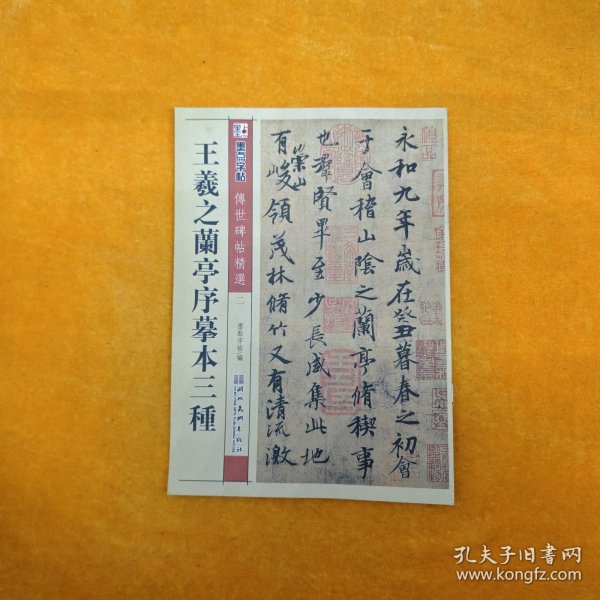 王羲之蘭亭序摹本三種
墨点字帖
傳世碑帖精選
二
墨點字帖編
湖北美術出版社
永和九年歲在癸丑暮春之初會
于會稽山陰之蘭亭脩稧事
也羣賢畢至少長咸集此地
有崇山峻領茂林脩竹又有清流激
孔夫子旧书网
www.kongfz.com